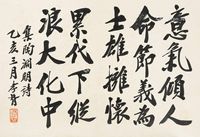 意氣傾人
命節義為
士雄擁懷
累代下縱
浪大化中
集陶淵明詩
乙亥三月